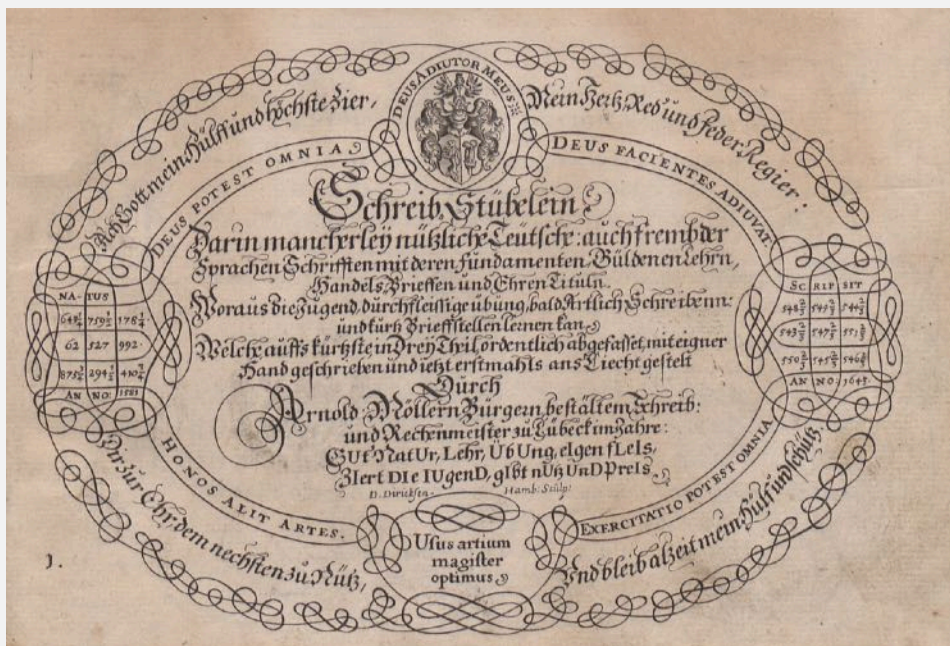 DEUS ADIUTOR MEUS
Ach Gott mein Hülff und höchste Zier,
Mein Hertz, Red' und Feder Regier:
DEUS POTEST OMNIA
DEUS FACIENTES ADIUVAT.
Schreib Stübelein
Darin mancherley nützliche Teütsche: auch frembder
Sprachen Schrifften mit deren fundamenten, Güldenen Lehrn,
Handels Brieffen und Ehren Tituln.
Woraus die Jugend, durch fleissige übung, bald Artlich Schreibenn:
und kürtz Brieff stellen lernen kan
Welche auffs kürtzste in Drey Theil ordentlich abgefasset, mit eigner
Hand geschrieben und ietzt erstmahls ans Liecht gestelt
Durch
Arnold Möllern Bürgern, bestältem Schreib:
und Rechenmeister zu Lübeck im Jahre:
GUt NatUr, Lehr, UbUng, eIgen fLeIs,
ZIert DIe IUgenD, gIbt nUtz UnD PreIs
D. Diricksen. Hamb: Sculp:
NA- TUS
62 527 992.
AN NO: 1581
SC RIP SIT
AN NO. 1645.
HONOS ALIT ARTES.
EXERCITATIO POTEST OMNIA
Usus artium
magister
optimus
Dir zur Ehr, dem nechsten zu Nütz,
Und bleib alzeit mein Hülf und schütz
1.